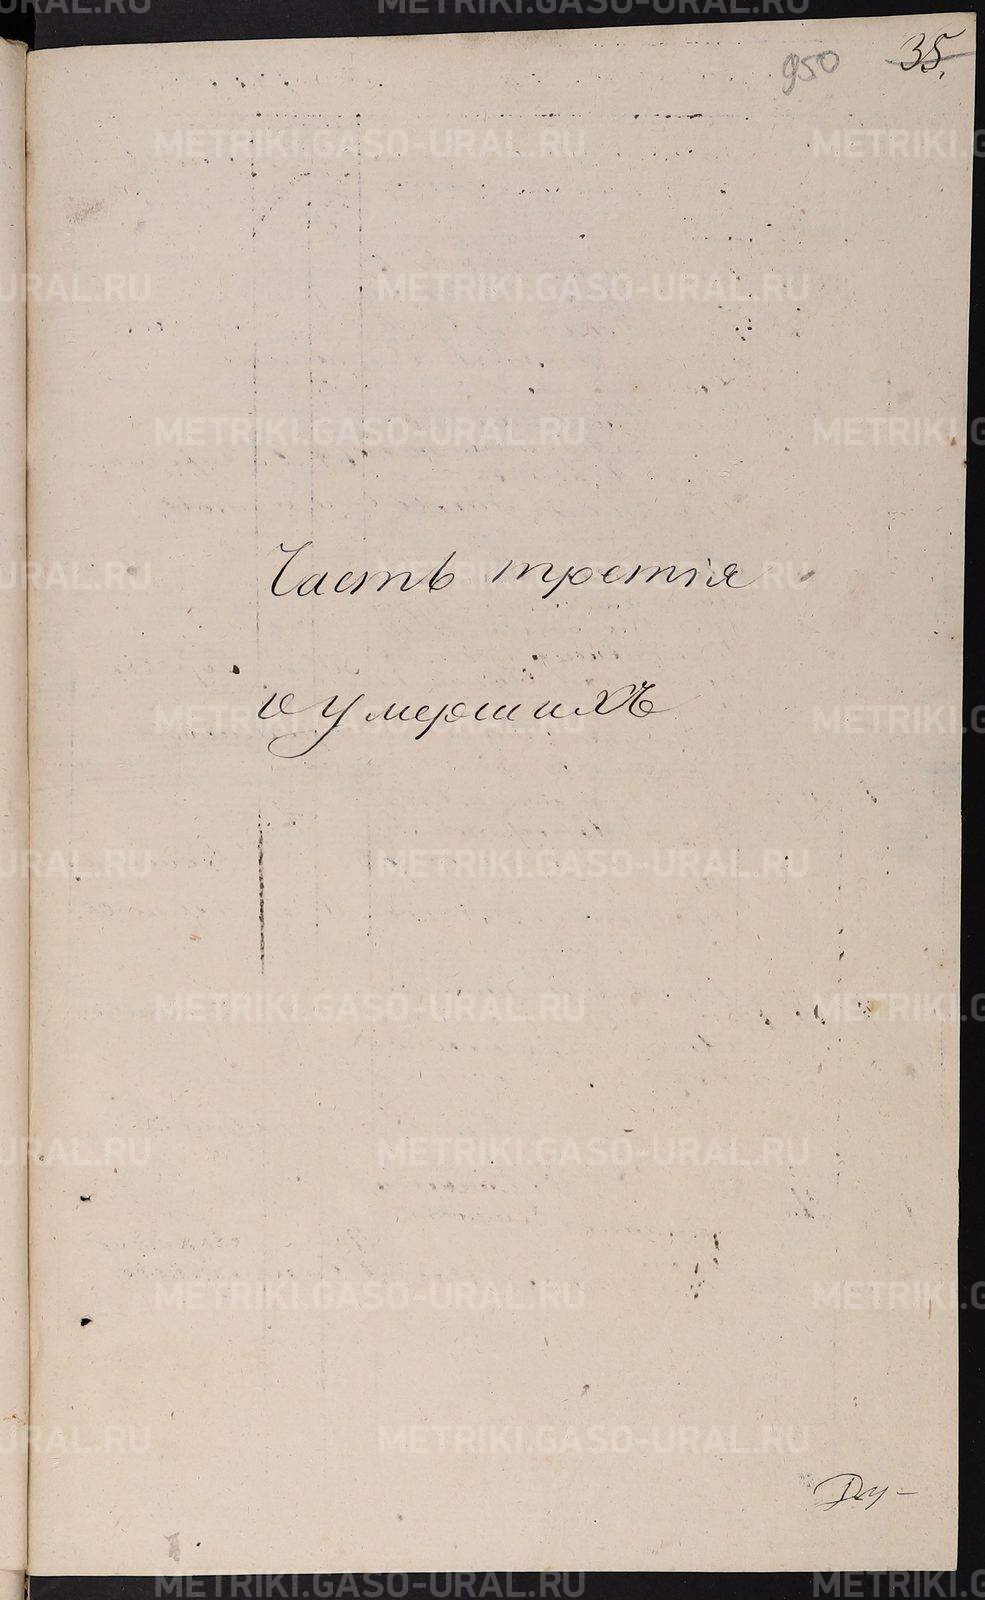 950 35.
Часть третія
о умершихъ
Ду-
METRIKI.GASO-URAL.RU